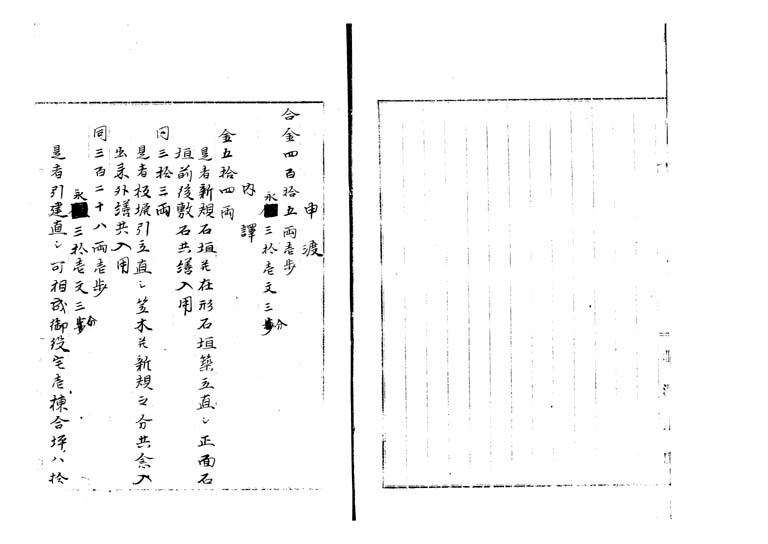 申渡
合金四百拾五両壱歩
永三拾壱文三分
内譯
金五拾四両
是者新規石垣并在形石垣築立直シ正面石
垣前後敷石共繕入用
同三拾三両
是者板塀引立直シ笠木并新規之分共念入
出来外繕共入用
同三百二十八両壱歩
永三拾壱文三分
是者引建直シ可相成御役宅壱棟合坪八拾